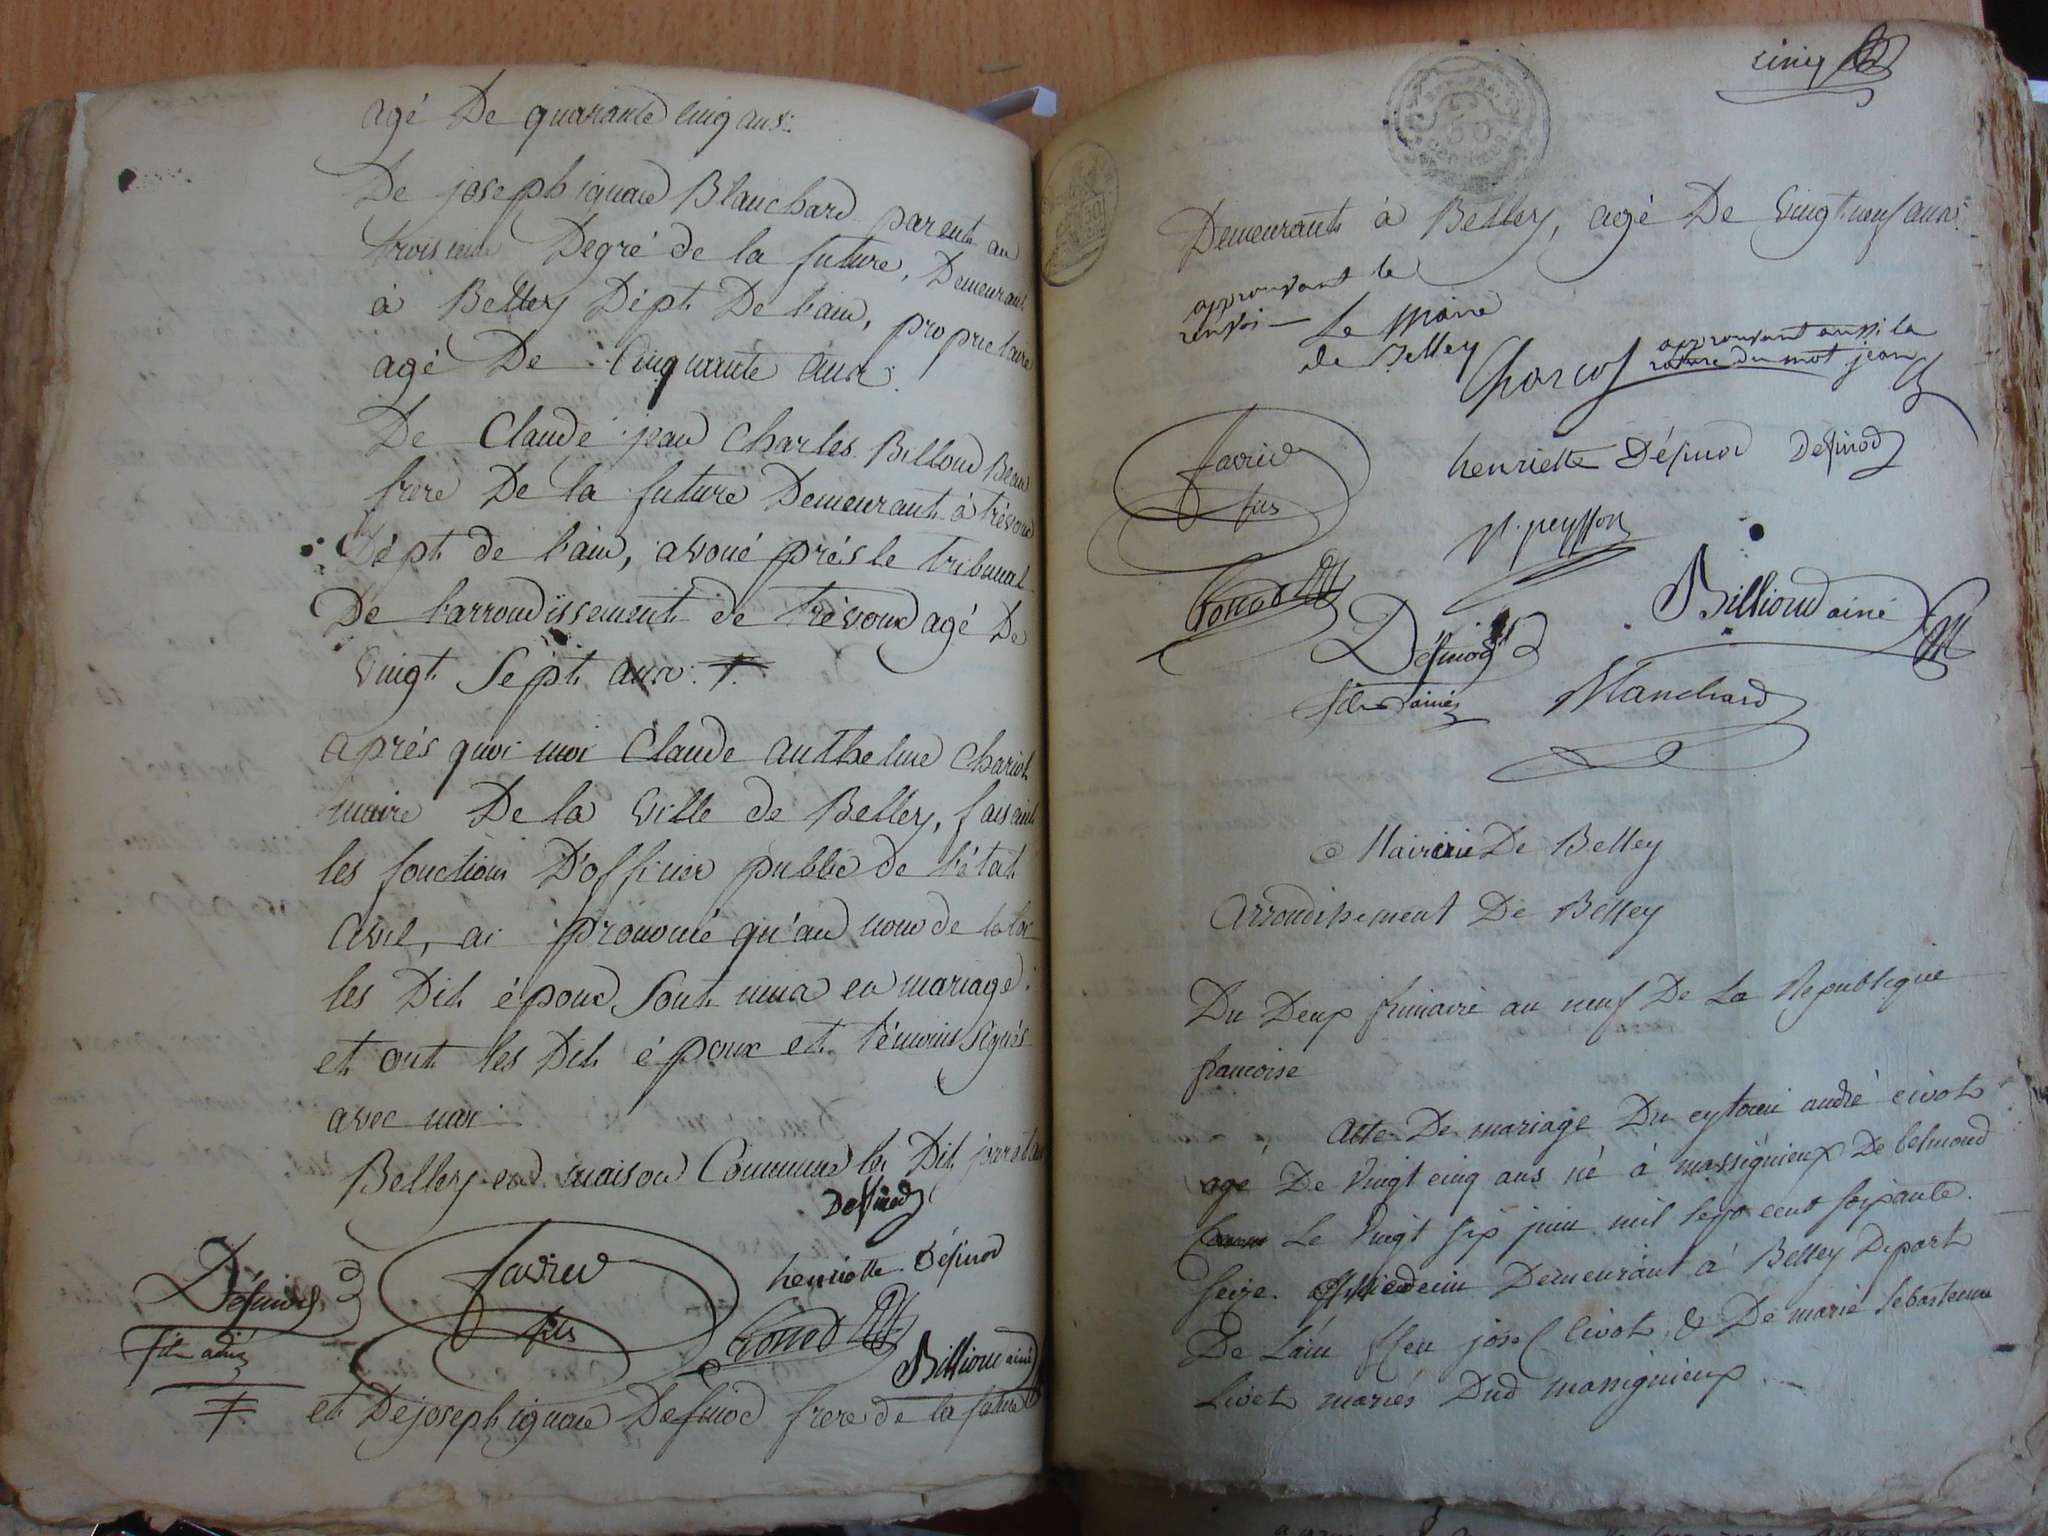 agé De quarante cinq ans.
De joseph ignace Blanchard parent au
troisieme Degré de la future, Demeurant
à Belley Dépt. De l'ain, proprietaire
agé De Cinquante ans.
De Claude jean Charles Billoud Beau
frere De la future Demeurant à trévoux
Dépt. de l'ain, avoué prés le tribunal
De l'arrondissement de trévoux agé De
vingt Sept ans. ⨎
après quoi moi Claude anthelme
maire De la Ville de Belley, faisant
les fonctions D'officier public de l'état
Civil, ai prononcé qu'au nom de la loi
les Dit époux Sont unis en mariage:
et ont les Dit époux et témoins Signés
avec moi.
Belley en maison Commune les Dit jour et an
Définod
Définod fils ainé
favier fils
henriette Définod
Billioud ainé
⨎ et De joseph ignace Définod frere de la future
cinq
50 CENTIMES
Demeurant à Belley, agé De vingt neuf ans.
approuvant le
renvoi — Le Maire
de Belley
approuvant aussi la
rature du mot jean
favier fils
henriette Définod Définod
peysson
Billioud ainé
Définod
fils ainé
Blanchard
Mairie De Belley
Arrondissement De Belley
Du Deux frimaire an neuf De La Republique
francoise
Acte De mariage Du cytoien andré civot
agé De Vingt cinq ans né à massignieux De belmond
Le Vingt six juin mil sept cent soixante
seize. Medecin Demeurant à Belley Depart
De L'ain f feu josef Civot, & De marie sebastienne
Livet mariés Dud massignieux